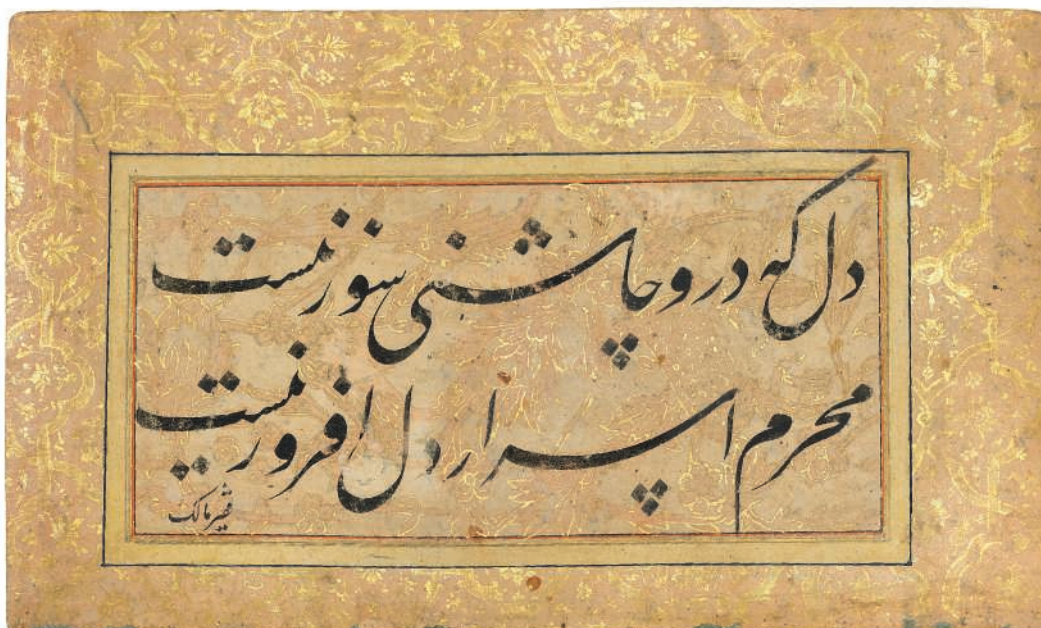 دل که درو چاشنی سوز نیست
محرم اسرار دل افروز نیست
فقیر مالک